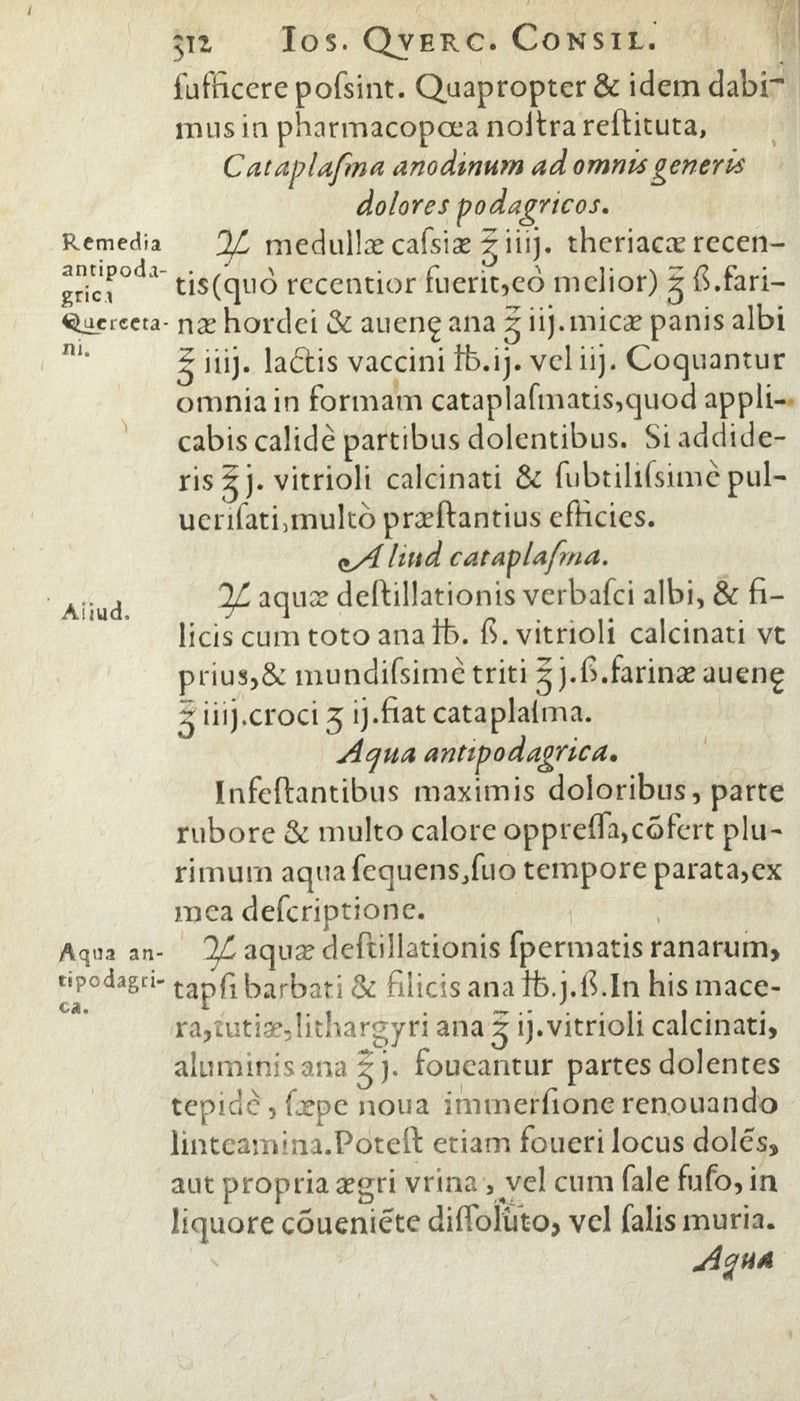 312 Ios. Qverc. Consil.
ſufficere poſsint. Quapropter & idem dabi-
mus in pharmacopœa noſtra reſtituta,
Cataplaſma anodinum ad omnis generis
dolores podagricos.
Remedia
antipoda-
grica
Querceta-
ni.
℞ medullæ caſsiæ ℥ iiij. theriacæ recen-
tis(quò recentior fuerit,eò melior) ℥ ß.fari-
næ hordei & auenę ana ℥ iij.micæ panis albi
℥ iiij. lactis vaccini ℔.ij. vel iij. Coquantur
omnia in formam cataplaſmatis,quod appli-
cabis calidè partibus dolentibus. Si addide-
ris ℥ j. vitrioli calcinati & ſubtiliſsimè pul-
ueriſati,multò præſtantius efficies.
Aliud cataplaſma.
Aliud.
℞ aquæ deſtillationis verbaſci albi, & fi-
licis cum toto ana ℔. ß. vitrioli calcinati vt
prius,& mundiſsimè triti ℥ j.ß.farinæ auenę
℥ iiij.croci ʒ ij.fiat cataplaſma.
Aqua antipodagrica.
Infeſtantibus maximis doloribus, parte
rubore & multo calore oppreſſa,cõfert plu-
rimum aqua ſequens,ſuo tempore parata,ex
mea deſcriptione.
Aqua an-
tipodagri-
ca.
℞ aquæ deſtillationis ſpermatis ranarum,
tapſi barbati & filicis ana ℔.j.ß.In his mace-
ra,tutiæ,lithargyri ana ℥ ij.vitrioli calcinati,
aluminis ana ℥ j. foueantur partes dolentes
tepidè, ſæpe noua immerſione renouando
linteamina.Poteſt etiam foueri locus dolẽs,
aut propria ægri vrina, vel cum ſale fuſo, in
liquore cõueniẽte diſſoluto, vel ſalis muria.
Aqua